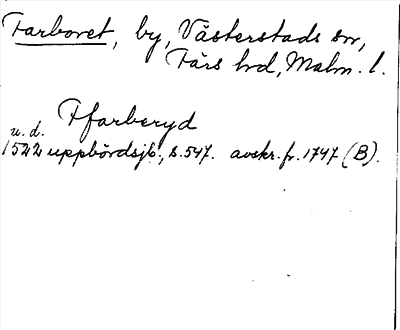 Farboret, by, Västerstads sn,
Färs hd, Malm. l.
Pfarberyd
u. d.
1522 uppbördsjb., s. 547. avskr. fr. 1747 (B).